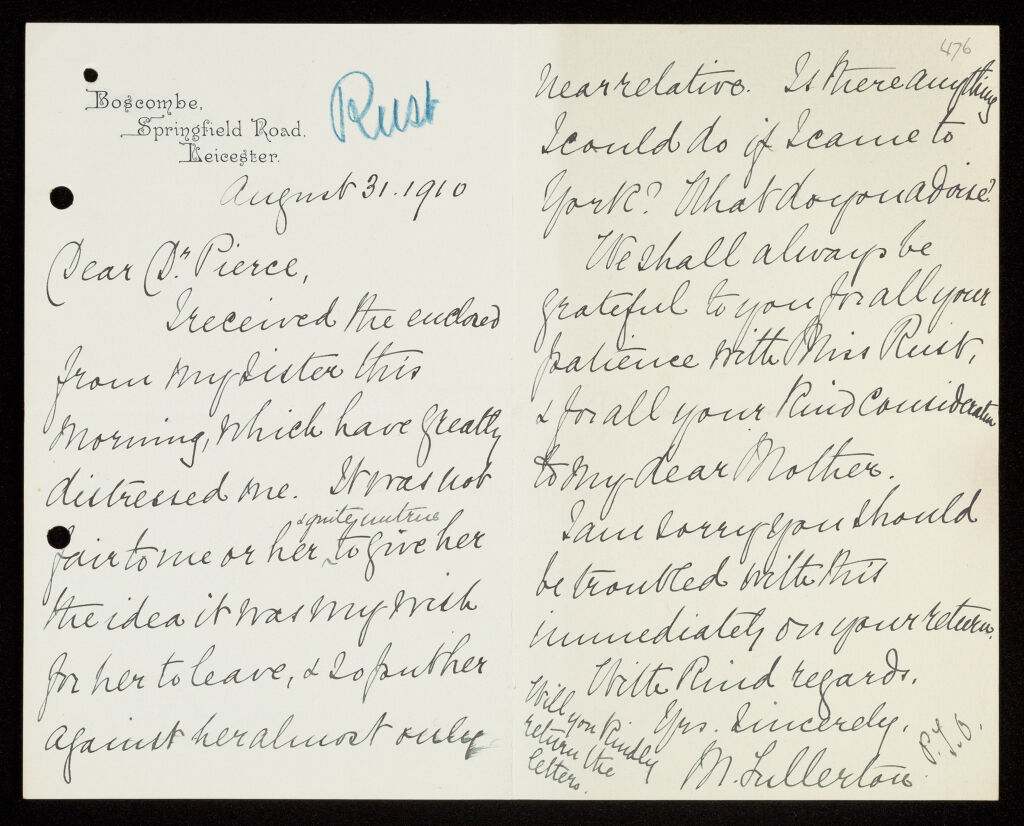 Boscombe,
Springfield Road.
Leicester.
Rust
August 31. 1910
Dear Dr. Pierce,
I received the enclosed
from my sister this
morning, which have greatly
distressed me. It was not
& quite untrue
fair to me or her, to give her
the idea it was my wish
for her to leave, & so put her
against her almost only
476
near relative. Is there anything
I could do if I came to
York? What do you advise?
We shall always be
grateful to you for all your
patience with Miss Rust,
& for all your kind consideration
to my dear Mother.
I am sorry you should
be troubled with this
immediately on your return.
With kind regards,
Yrs. Sincerely,
M. Fullerton
P.T.O.
Will you kindly
return the
letters.